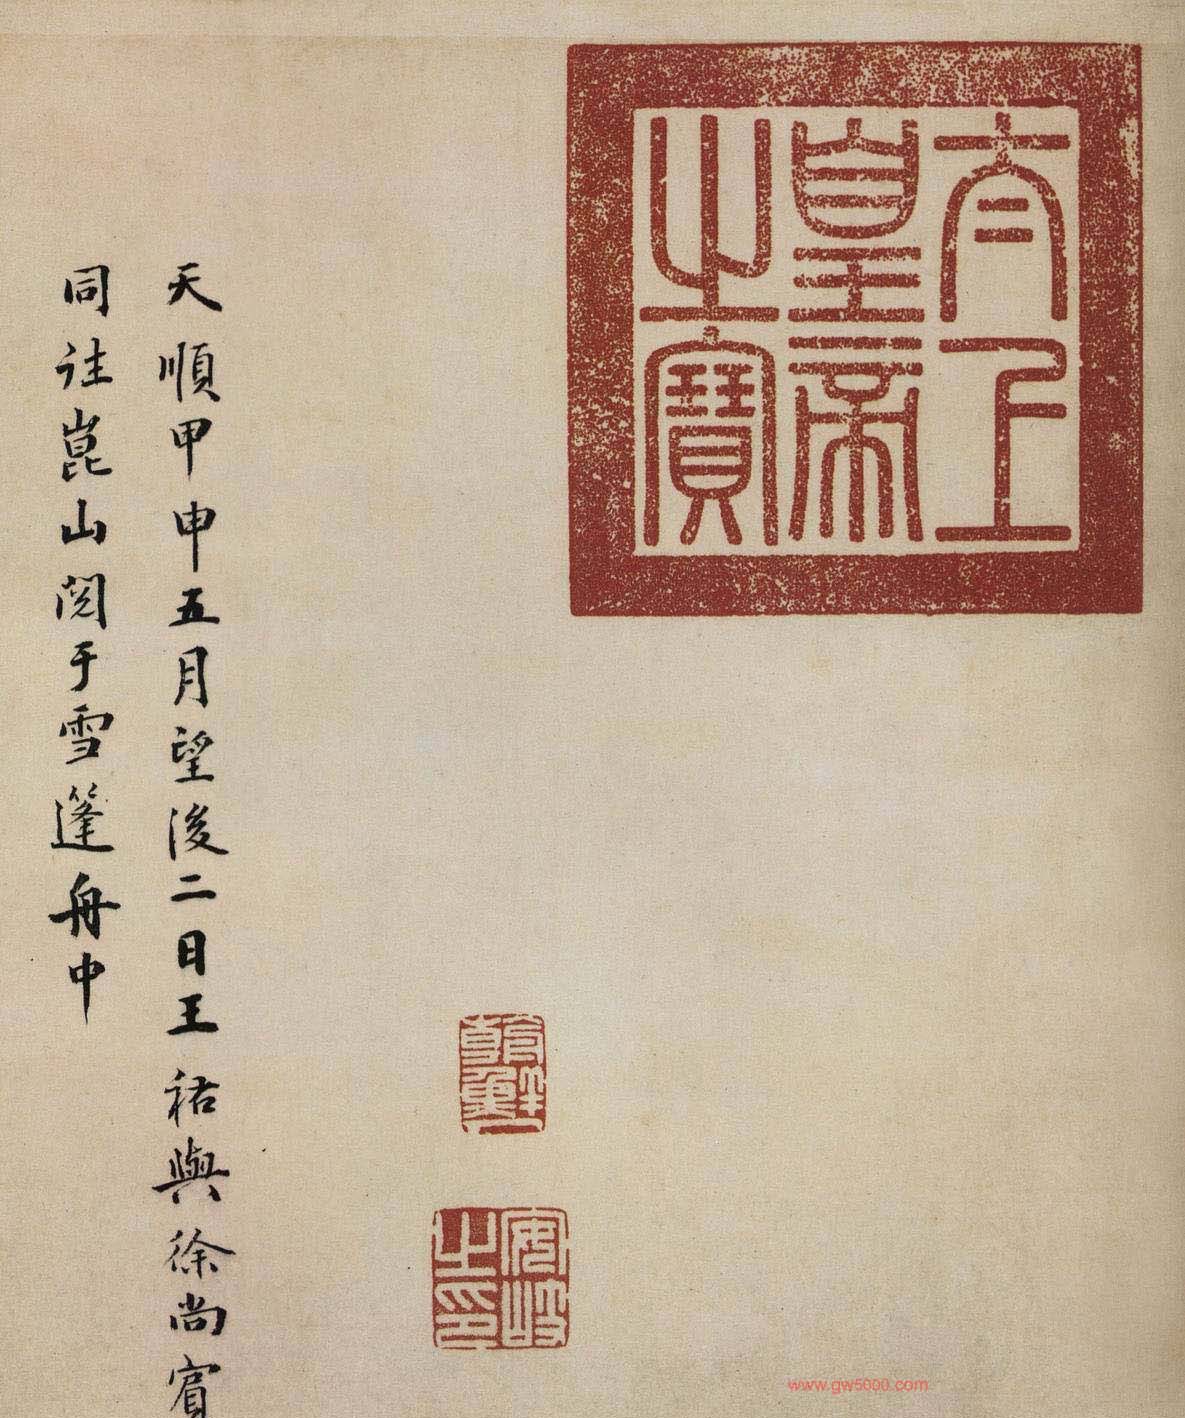 太上
皇帝
之寶
安岐
之印
天順甲申五月望後二日王祐與徐尚賓
同往崑山閱于雪篷舟中
www.gw5000.com